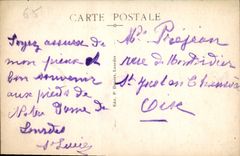 CARTE POSTALE
Soyez assuré de
mon pieux et
bon souvenir
aux pieds de
Notre Dame de
Lourdes
Sr Lucie
Mlle
rue de Montdidier
St Just en Chaussée
Oise